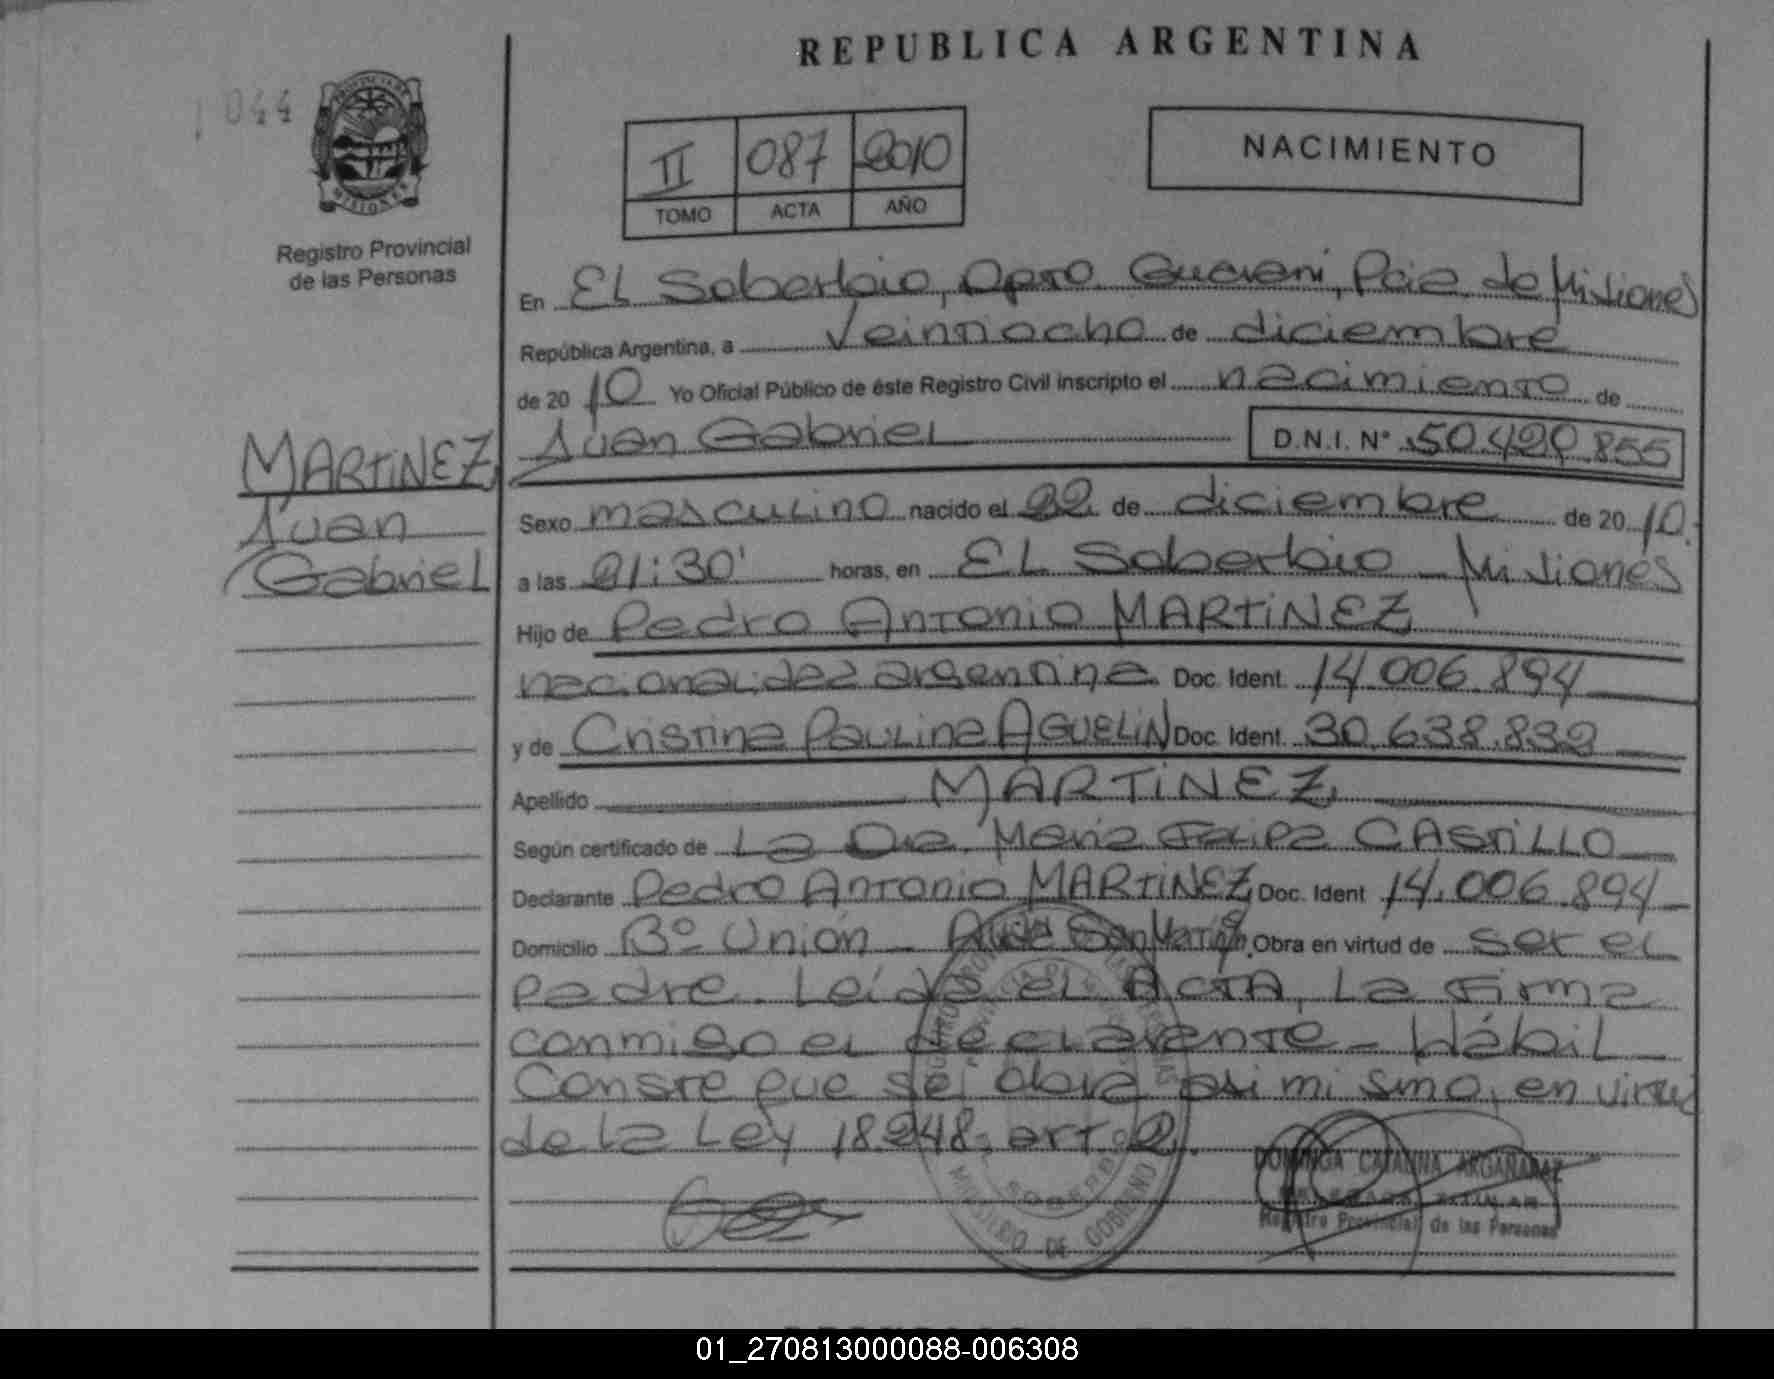 REPUBLICA ARGENTINA
044
PROVINCIA DE
MISIONES
Registro Provincial
de las Personas
II 087 2010
TOMO ACTA AÑO
NACIMIENTO
En El Soberbio, Dpto. Guaraní, Pcia de Misiones
República Argentina, a veintiocho de diciembre
de 2010 Yo Oficial Público de éste Registro Civil inscripto el nacimiento de
MARTINEZ,
Juan
Gabriel
Juan Gabriel D.N.I. Nº 50.420.855
Sexo masculino nacido el 22 de diciembre de 2010.
a las 21:30' horas, en El Soberbio - Misiones
Hijo de Pedro Antonio MARTINEZ
nacionalidad argentina Doc. Ident. 14.006.894
y de Cristina Paulina AGUELIN Doc. Ident. 30.638.832
Apellido MARTINEZ
Según certificado de La Dra. María Felipa CASTILLO
Declarante Pedro Antonio MARTINEZ Doc. Ident 14.006.894
Domicilio Bº Unión - Avda San Martín. Obra en virtud de ser el
padre. Leída el ACTA, La firma
conmigo el declarante - Hábil
Conste que se obra asi mismo, en virtud
de la Ley 18.248, art. 2.
MINISTERIO DE GOBIERNO
DOMINGA CATALINA ARGAÑARAZ
Registro Provincial de las Personas
01_270813000088-006308